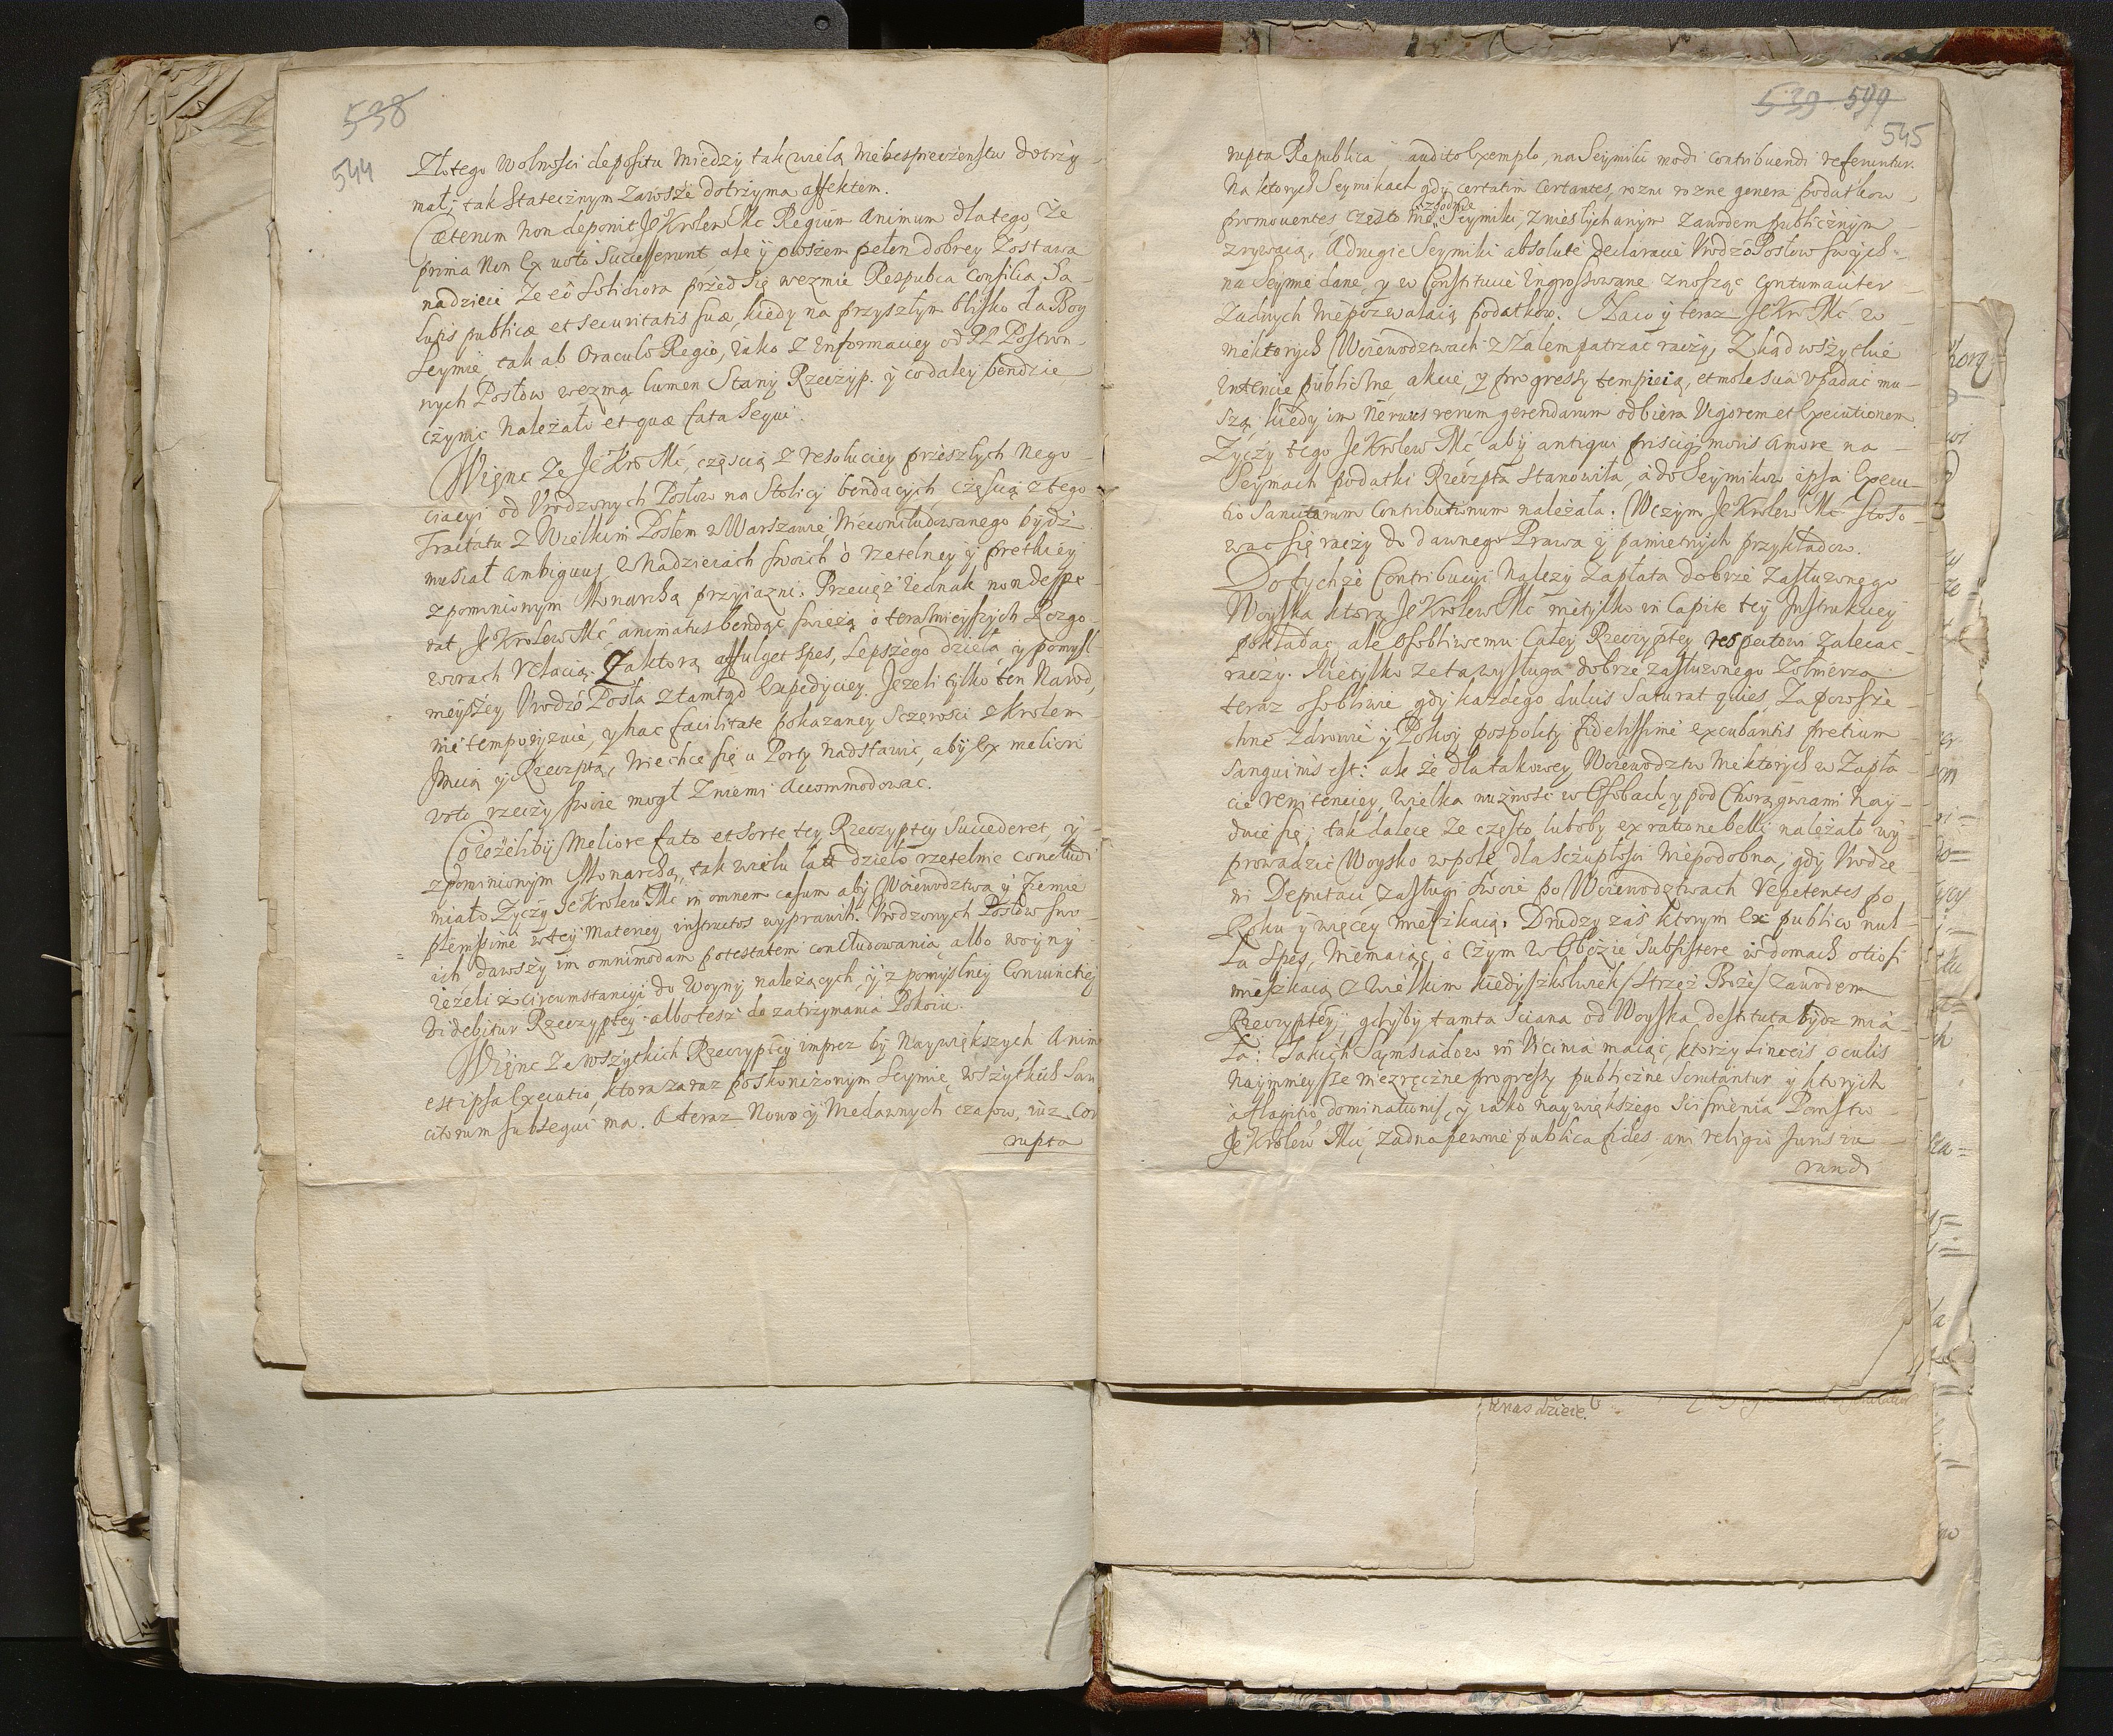 538
544
Złotego Wolnosci depositu miedzy tak wielą niebespieczenstw dotrzy
mał, tak statecznym zawsze dotrzyma affektem.
Cæterum non deponit Je Krolew Mc Regium Animum dlatego, że
prima non ex voto successerunt, ale ÿ owszem pełen dobrey zostawa
nadzieie że eo solidiora przed się wezmie Respubca Consilia Sa-
lutis publicæ et securitatis suæ, kiedy na przyszłym blisko da Bog
Seymie tak ab Oraculo Regio, iako z Informaciey od Postron-
nych Posłow wezmą lumen Stany Rzeczyp. ÿ co daley bendzie
czynic należało et quæ fata sequi.
Więnc że Je Kro Mć, częscią z resoluciey przeszłych nego-
ciacyi od Vrodzonych Posłow na Stolicy bendących, częscią z tego
Tractatu z Wielkim Posłem w Warszawie niewonkludowanego bydz
musiał ambiguus w Nadzieiach swoich o rzetelney ÿ prętkiey
zpomnionym Monarchą przyiazni. Przecięż iednak non despe-
rat, Je Krolew Mć animatus bendąc swieżą o teraznieyszych Rozgo-
worach relacią. Zaktorą affulget spes, Lepszego dzieła, y pomysl-
nieyszey Vrodzo Posła ztamtąd Expedyciey. Jezeli tylko ten Narod,
nie temporyzuie, y hac facilitate pokazaney sczerosci z Krolem
Jmcią ÿ Rzeczptą, niechce się u Porty nadstawic, aby ex meliori
voto rzeczy swoie mogł z niemi accommodowac.
Co ieżeliby meliore fato et sorte tey Rzeczyptey succederet, ÿ
zpomnionym Monarchą, tak wielu latt dzieło rzetelnie concludi
miało Życzy Je Krolew Mc in omnem casum aby Woiewodztwa ÿ Ziemie
plenissime w tey materiey instructos wyprawili Vrodzonych Posłow swo-
ich, dawszy im omnimodam potestatem concludowania albo woyny
ieżeli z circumstancyi do Woyny należących, ÿ z pomyslney Coniunctiey
videbitur Rzeczyptey albo tesz do zatrzymania Pokoiu.
Więnc że wszytkich Rzeczyptey imprez by Naywiększych Anim
est ipsa Executio, ktora zaraz poskonczonym Seymie, wszytkich San
citorum subsequi ma. A teraz Nowo ÿ niedawnych czasow, iuz Cor
rupta
539 599
545
rupta Republica audito Exemplo, na Seymiki modi contribuendi referuntur.
Na ktorych Seymikach gdy certatim Certantes, rozni rozne genera podatkow
zgodnie
promouentes często nie Seymiki, z niesłychanym zawodem publicznym
zrywaią, A drugie Seymiki absolute declaracie Vrodzo Posłow swych
na Seymie dane, y w Constitucie Ingrossowane znosząc contumaciter
Żadnych niepozwalaią podatkow. Naco ÿ teraz Je Kro Mć w
niektorych Woiewodztwach z Żalem patrzac raczy, Zkąd wszytkie
Intencie publiczne, akcie, y progressy tempieią, et mole sua vpadac mu-
szą kiedy im neruus rerum gerendarum odbiera Vigorem et Executionem.
Życzy tego Je Krolew Mć aby antiqui priscique moris amore na
Seymach podatki Rzeczpta stanowiła, a do Seymikow ipsa Execu-
tio Sancitarum Contributionum należała. Wczym Je Krolew Mć stoso-
wac się raczy do dawnego Prawa ÿ pamietnych przykładow.
Do tychże Contribucyi należy Zapłata dobrze Zasłużonego
Woyska ktorą Je Krolew Mć nietylko in Capite tey Instrukciey
pokładac, ale Osobliwemu Całey Rzeczyptey respectowi zalecac
raczy. Nietylko że ta wysługa dobrze zasłużonego Żołnierza
teraz osobliwie, gdy każdego dulcis saturat quies, Za powsze-
chne Zdrowie ÿ Pokoy pospolity fidelissime excubantis pretium
Sanguinis est: ale że dla takowey Woiewodztw niektorych w Zapła-
cie renitenciey, wielka nużnosc w Osobach y pod Chorągwiami nay-
duie się, tak dalece że często luboby ex ratione belli należało wy-
prowadzic Woysko w pole, dla sczupłosci niepodobna, gdy Vrodze-
ni Deputaci zasługi swoie po Woiewodztwach repetentes po
Roku ÿ więcey mieszkaią. Drudzy zaś ktorym Ex publico nul-
la spes, niemaiąc o czym w Obozie subsistere w domach otiosi
mieszkaią z wielkim kiedyszkolwiek/ Strzeż Boże/ zawodem
Rzeczyptey, gdyby tamta sciana od Woyska destituta bydz mia-
ła: Jakich Sąmsiadow in Vicinia maiąc, ktorzy Linceis oculis
naymnieysze niezręczne progressy publiczne scrutantur y ktorych
dominationis, y iako naywiększego scisnienia Panstw
Je Krolew Mci, żadna pewnie publica fides ani religio Juris iu
randi
unas dziecie.